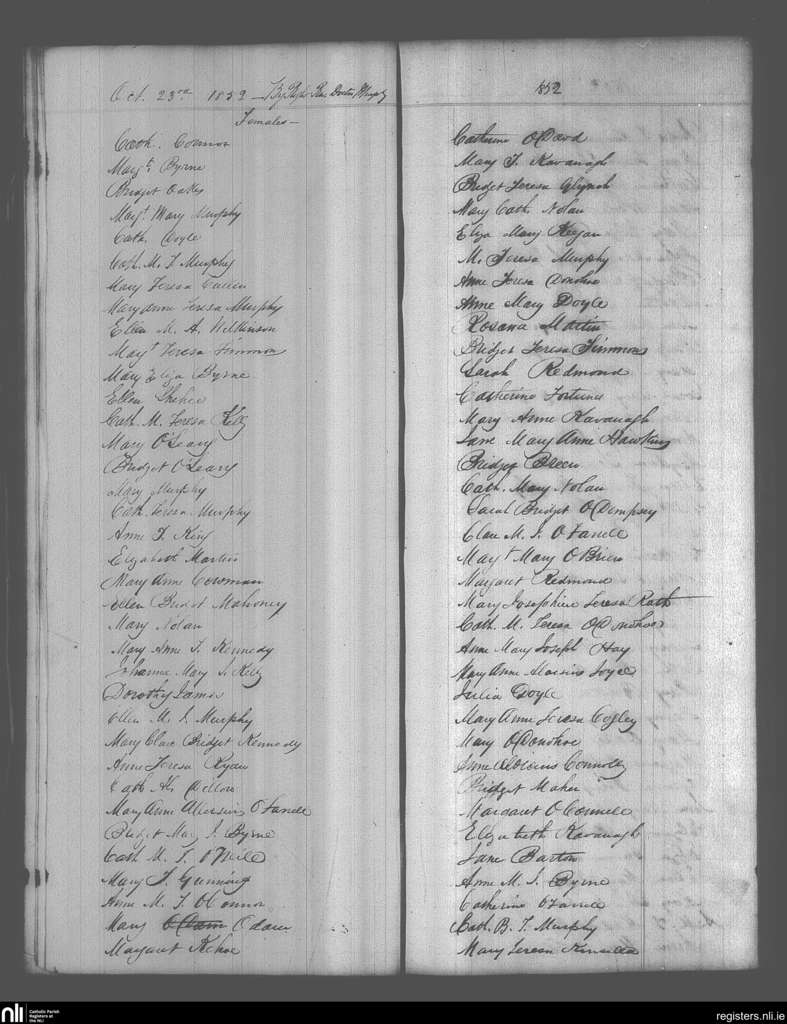 Oct. 23rd 1852 — By Right Rev. Doctor Murphy
Females —
Cath. Connor
Margt. Byrne
Bridget Oakes
Margt. Mary Murphy
Cath. Doyle
Cath. M. T. Murphy
Mary Teresa Cullen
Mary Anne Teresa Murphy
Ellen M. A. Wilkinson
Margt. Teresa Simmon
Mary Eliza Byrne
Ellen
Cath. M. Teresa Kelly
Mary O'Leary
Bridget O'Leary
Mary Murphy
Cath. Teresa Murphy
Anne T. King
Elizabeth Martin
Mary Anne Cowman
Ellen Bridget Mahoney
Mary Nolan
Mary Anne T. Kennedy
Johanna Mary T. Kelly
Dorothy James
Ellen M. J. Murphy
Mary Clare Bridget Kennedy
Anne Teresa Ryan
Cath. Dillon
Mary Anne Aloysius O'Farrell
Bridget Mary J. Byrne
Cath M. T. O'Neile
Mary T.
Anne M. T. O'Connor
Mary Odair
Margaret Kehoe
1852
Catherine O'Dowd
Mary T. Kavanagh
Bridget Teresa Glynch
Mary Cath Nolan
Eliza Mary Keegan
M. Teresa Murphy
Anne Teresa Donohoe
Anne Mary Doyle
Rosana Martin
Bridget Teresa Simmons
Sarah Redmond
Catherine Fortune
Mary Anne Kavanagh
Jane Mary Anne Hawkins
Bridget Breen
Cath. Mary Nolan
Sarah Bridget O'Dempsey
Clare M. J. O'Farrell
Margt Mary O'Brien
Margaret Redmond
Mary Josephine Teresa Rath
Cath. M. Teresa O'Donohoe
Anne Mary Joseph Hay
Mary Anne Aloysius Joyce
Julia Doyle
Mary Anne Teresa Cogley
Mary O'Donohoe
Anne Aloysius Connolly
Bridget Maher
Margaret O'Connell
Elizabeth Kavanagh
Jane Barton
Anne M. J. Byrne
Catherine O'Farrell
Cath. B. T. Murphy
Mary Teresa Kinsella
nli Catholic Parish Registers at the NLI
registers.nli.ie